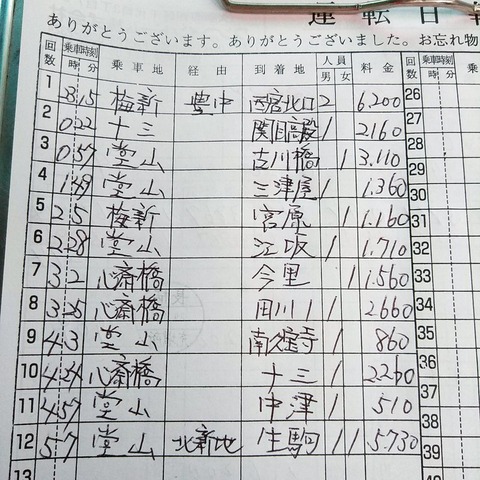 運転日報
ありがとうございます。ありがとうございました。お忘れ物
回数 乗車時刻 時 分 乗車地 経由 到着地 人員 男 女 料金 回数
1 8 15 梅新 豊中 西宮北口 2 6.200 26
2 0 22 十三 関目高殿 1 2.160 27
3 0 57 堂山 古川橋 1 3.110 28
4 1 49 堂山 三津屋 1 1.360 29
5 2 5 梅新 宮原 1 1.160 30
6 2 28 堂山 江坂 1 1.710 31
7 3 2 心斎橋 今里 1 1.560 32
8 3 25 心斎橋 田川 1 2660 33
9 4 3 堂山 南久宝寺 1 860 34
10 4 24 心斎橋 十三 1 2260 35
11 4 57 堂山 中津 1 510 36
12 5 7 堂山 北新地 生駒 1 1 5.730 37
13 38
39